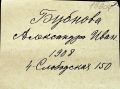 Бубнова
Александра Иван
1908
4 Слободская 150